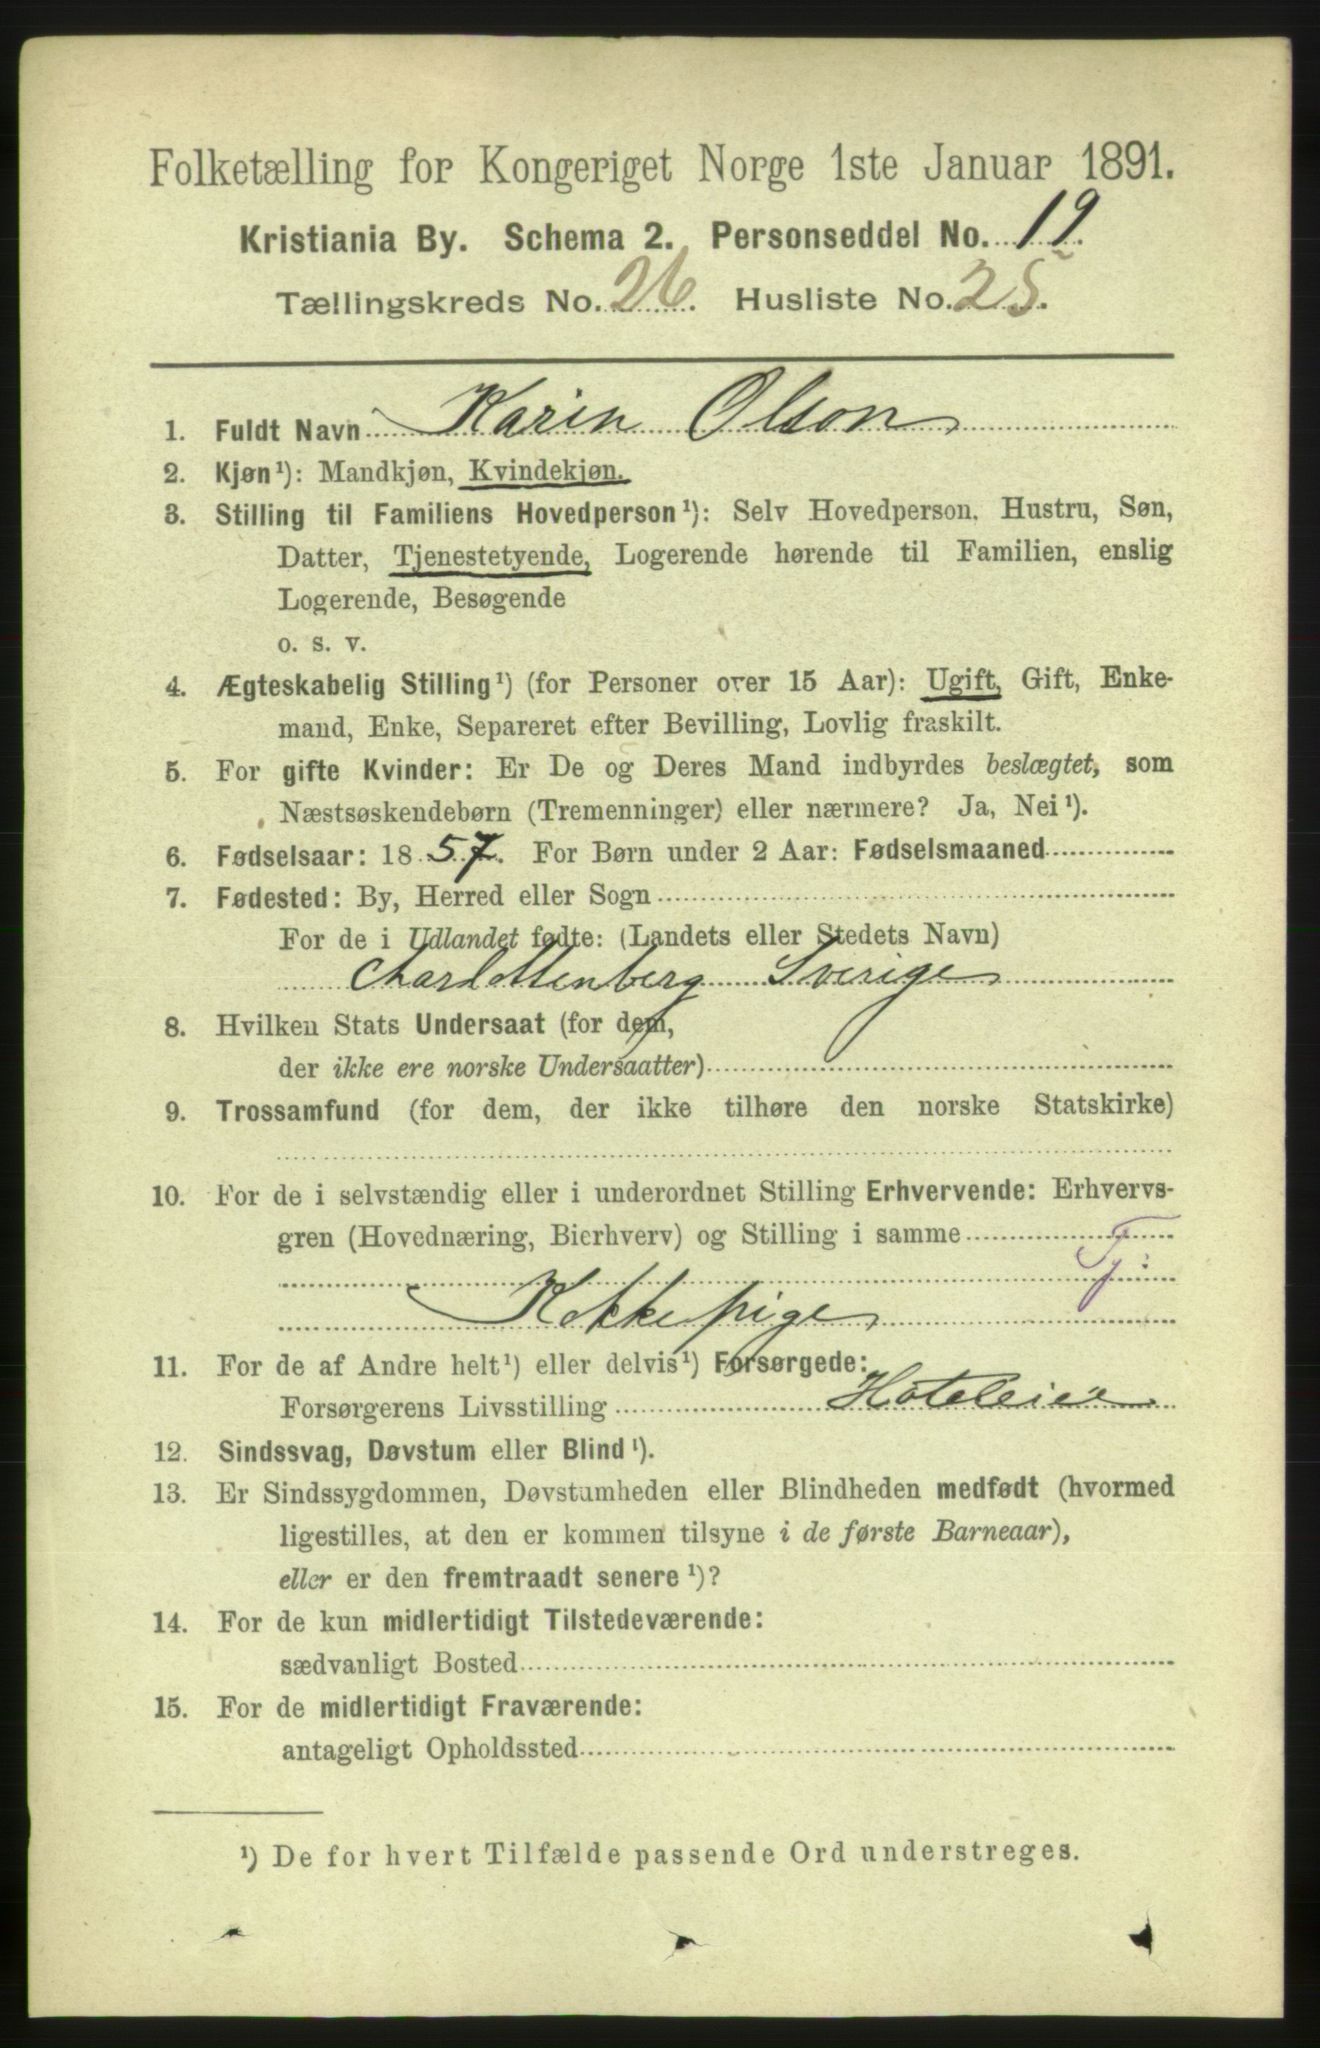 Folketælling for Kongeriget Norge 1ste Januar 1891.
Kristiania By. Schema 2. Personseddel No. 19.
Tællingskreds No. 26. Husliste No. 25.
1. Fuldt Navn Karin Olson
2. Kjøn¹): Mandkjøn, Kvindekjøn.
3. Stilling til Familiens Hovedperson¹): Selv Hovedperson, Hustru, Søn,
Datter, Tjenestetyende, Logerende hørende til Familien, enslig
Logerende, Besøgende
o. s. v.
4. Ægteskabelig Stilling¹) (for Personer over 15 Aar): Ugift, Gift, Enke-
mand, Enke, Separeret efter Bevilling, Lovlig fraskilt.
5. For gifte Kvinder: Er De og Deres Mand indbyrdes beslægtet, som
Næstsøskendebørn (Tremenninger) eller nærmere? Ja, Nei¹).
6. Fødselsaar: 1857. For Børn under 2 Aar: Fødselsmaaned
7. Fødested: By, Herred eller Sogn
For de i Udlandet fødte: (Landets eller Stedets Navn)
Charlottenberg Sverige
8. Hvilken Stats Undersaat (for dem,
der ikke ere norske Undersaatter)
9. Trossamfund (for dem, der ikke tilhøre den norske Statskirke)
10. For de i selvstændig eller i underordnet Stilling Erhvervende: Erhvervs-
gren (Hovednæring, Bierhverv) og Stilling i samme
Tj:
Kokkepige
11. For de af Andre helt¹) eller delvis¹) Forsørgede:
Forsørgerens Livsstilling Hoteleier
12. Sindssvag, Døvstum eller Blind¹).
13. Er Sindssygdommen, Døvstumheden eller Blindheden medfødt (hvormed
ligestilles, at den er kommen tilsyne i de første Barneaar),
eller er den fremtraadt senere¹)?
14. For de kun midlertidigt Tilstedeværende:
sædvanligt Bosted
15. For de midlertidigt Fraværende:
antageligt Opholdssted
¹) De for hvert Tilfælde passende Ord understreges.